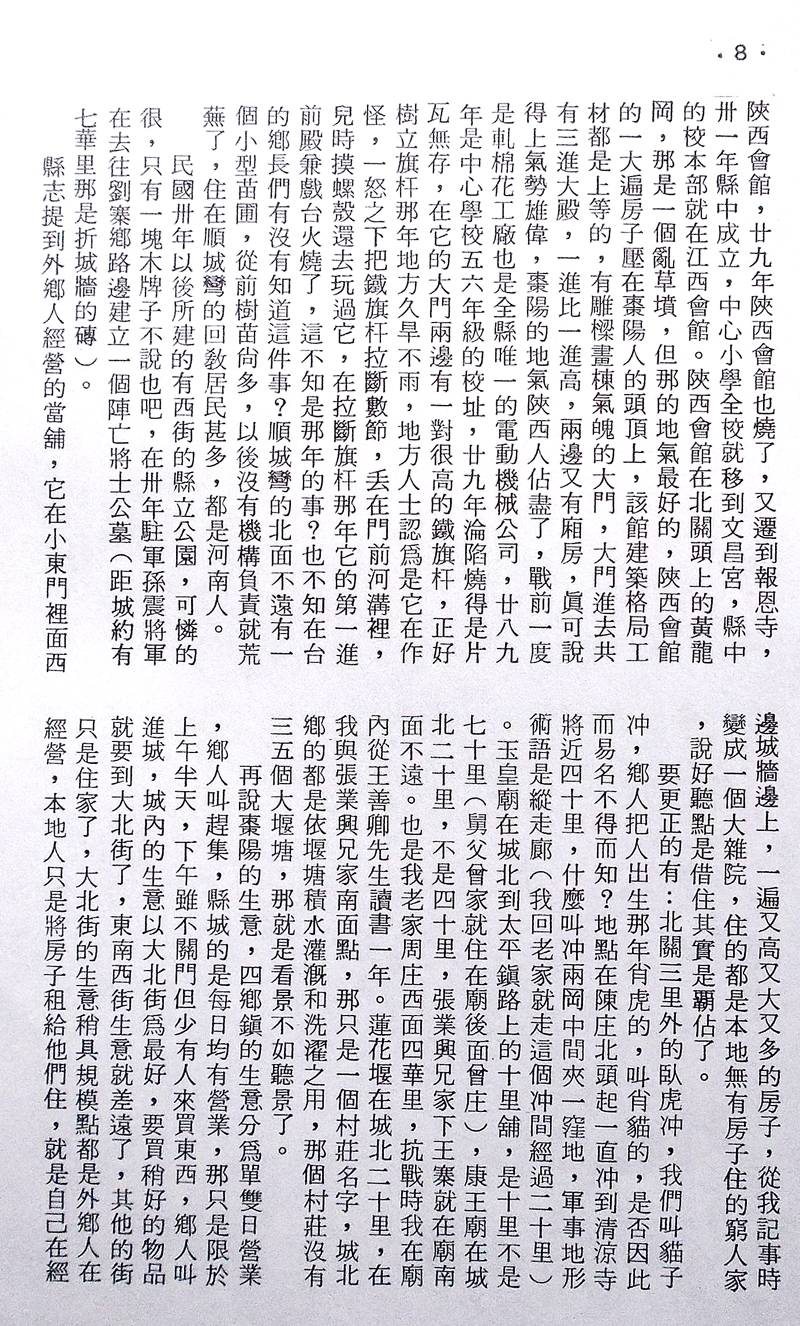 ·8·
陝西會館，廿九年陝西會館也燒了，又遷到報恩寺，
卅一年縣中成立，中心小學全校就移到文昌宮，縣中
的校本部就在江西會館。陝西會館在北關頭上的黃龍
岡，那是一個亂草墳，但那的地氣最好的，陝西會館
的一大遍房子壓在棗陽人的頭頂上，該館建築格局工
材都是上等的，有雕樑畫棟氣魄的大門，大門進去共
有三進大殿，一進比一進高，兩邊又有廂房，眞可說
得上氣勢雄偉，棗陽的地氣陝西人佔盡了，戰前一度
是軋棉花工廠也是全縣唯一的電動機械公司，廿八九
年是中心學校五六年級的校址，廿九年淪陷燒得是片
瓦無存，在它的大門兩邊有一對很高的鐵旗杆，正好
樹立旗杆那年地方久旱不雨，地方人士認爲是它在作
怪，一怒之下把鐵旗杆拉斷數節，丢在門前河溝裡，
兒時摸螺殼還去玩過它，在拉斷旗杆那年它的第一進
前殿兼戲台火燒了，這不知是那年的事？也不知在台
的鄉長們有沒有知道這件事？順城彎的北面不遠有一
個小型苗圃，從前樹苗尙多，以後沒有機構負責就荒
蕪了，住在順城彎的回敎居民甚多，都是河南人。
民國卅年以後所建的有西街的縣立公園，可憐的
很，只有一塊木牌子不說也吧，在卅年駐軍孫震將軍
在去往劉寨鄉路邊建立一個陣亡將士公墓（距城約有
七華里那是折城牆的磚）。
縣志提到外鄉人經營的當舖，它在小東門裡面西
邊城牆邊上，一遍又高又大又多的房子，從我記事時
變成一個大雜院，住的都是本地無有房子住的窮人家
，說好聽點是借住其實是霸佔了。
要更正的有：北關三里外的臥虎冲，我們叫貓子
冲，鄉人把人出生那年肖虎的，叫肖貓的，是否因此
而易名不得而知？地點在陳庄北頭起一直冲到清涼寺
將近四十里，什麼叫冲兩岡中間夾一窪地，軍事地形
術語是縱走廊（我回老家就走這個冲間經過二十里）
。玉皇廟在城北到太平鎭路上的十里舖，是十里不是
七十里（舅父曾家就住在廟後面曾庄），康王廟在城
北二十里，不是四十里，張業興兄家下王寨就在廟南
面不遠。也是我老家周庄西面四華里，抗戰時我在廟
內從王善卿先生讀書一年。蓮花堰在城北二十里，在
我與張業興兄家南面點，那只是一個村莊名字，城北
鄉的都是依堰塘積水灌漑和洗濯之用，那個村莊沒有
三五個大堰塘，那就是看景不如聽景了。
再說棗陽的生意，四鄉鎭的生意分爲單雙日營業
，鄉人叫趕集，縣城的是每日均有營業，那只是限於
上午半天，下午雖不關門但少有人來買東西，鄉人叫
進城，城內的生意以大北街爲最好，要買稍好的物品
就要到大北街了，東南西街生意就差遠了，其他的街
只是住家了，大北街的生意稍具規模點都是外鄉人在
經營，本地人只是將房子租給他們住，就是自己在經